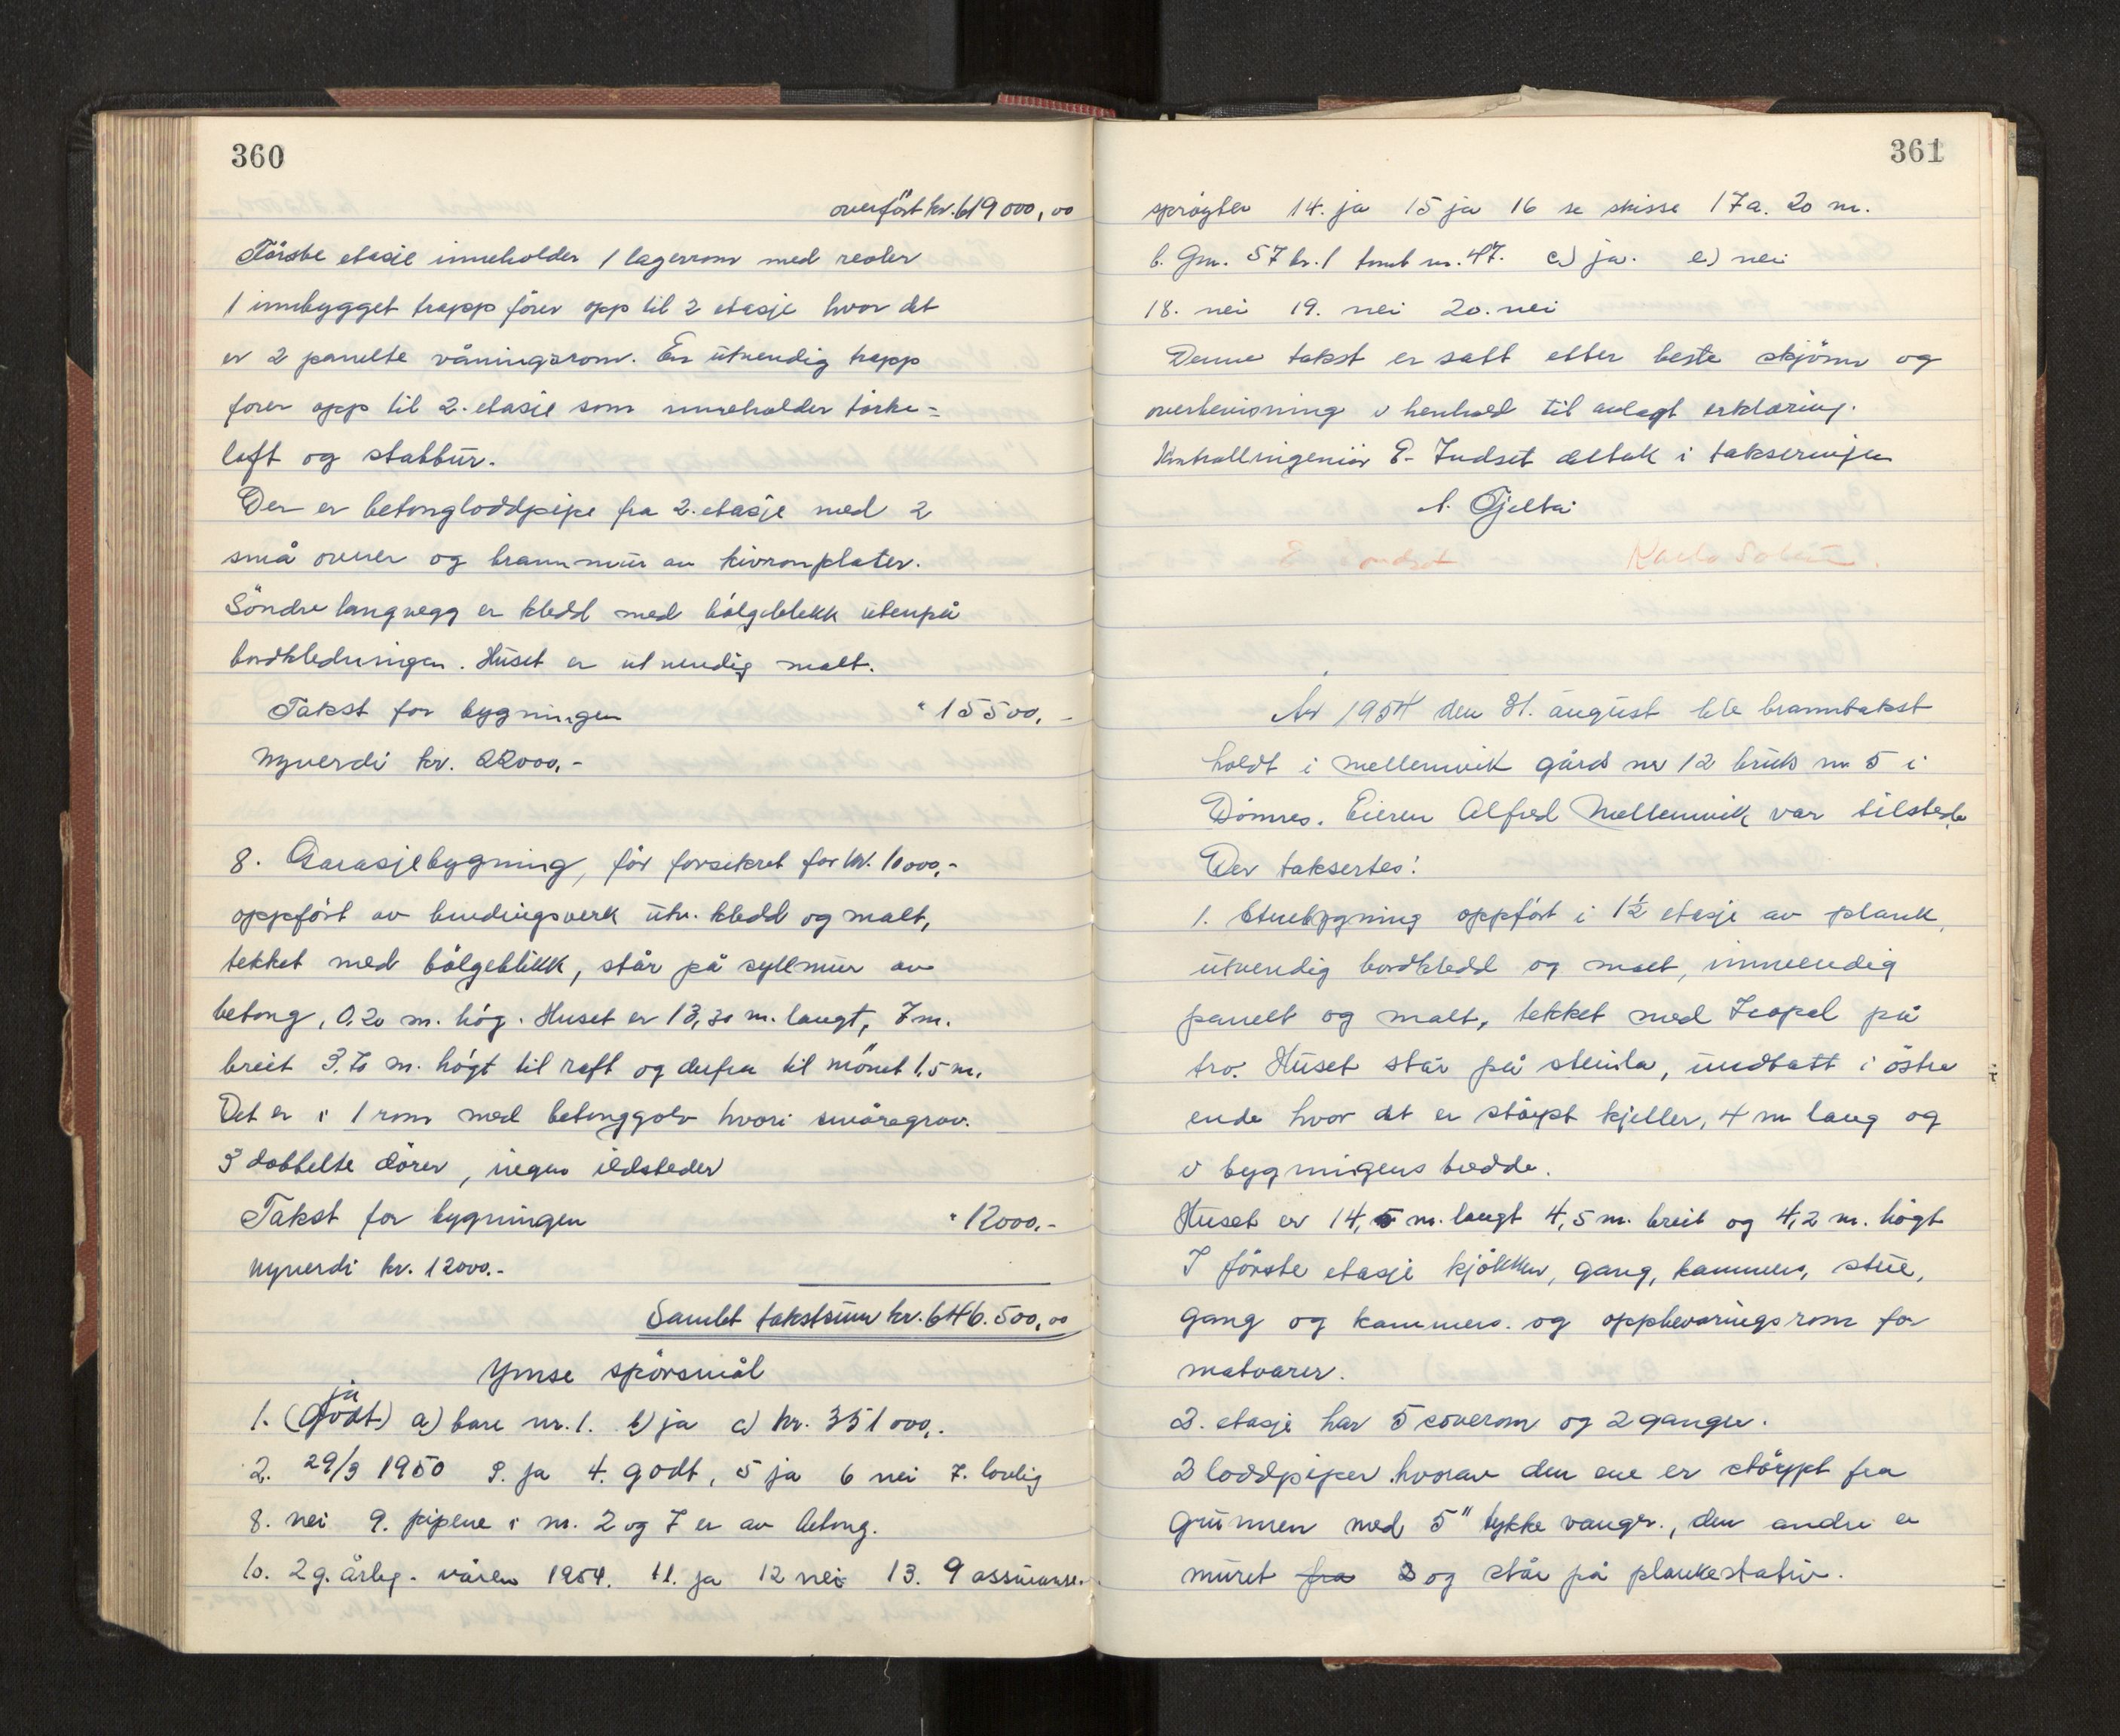 360
overfört kr. 619000,00
Förste etasje inneholder 1 lagerrom med reoler
1 innbygget trapp förer opp til 2 etasje hvor det
er 2 panelte våningsrom. En utvendig trapp
förer opp til 2. etasje som inneholder törke-
loft og stabbur.
Der er betongloddpipe fra 2. etasje med 2
små ovner og brannmur av plater.
Söndre langvegg er kledd med bölgeblekk utenpå
bordkledningen. Huset er utvendig malt.
Takst for bygningen " 15500,-
Nyverdi kr. 22000,-
8. Garasjebygning, för forsikret for kr. 10000,-
oppfört av bindingsverk utv. kledd og malt,
tekket med bölgeblikk, står på syllmur av
betong, 0,20 m. hög. Huset er 13,30 m. langt, 7 m.
breit 3,70 m. högt til raft og derfra til mönet 1,5 m.
Det er i 1 rom med betonggolv hvori smöregrav.
3 dobbelte dörer, ingen ildsteder
Takst for bygningen " 12000,-
Nyverdi kr. 12000.-
Samlet takstsum kr. 646.500,00
Ymse spörsmål
ja
1. (Godt) a) bare nr. 1. b) ja c) kr. 351000,.
2. 29/3 1950 3. ja 4. godt, 5 ja 6 nei 7. lovlig
8. nei 9. pipene i nr. 2 og 7 er av betong.
10. 2 g. årleg. våren 1954. 11. ja 12 nei 13. 9 assuranse-
361
spröyter 14. ja 15 ja 16 se skisse 17 a. 20 m.
b. Gnr. 57 br. 1 tomt nr. 47. c) ja. e) nei
18. nei 19. nei 20. nei
Denne takst er satt etter beste skjönn og
overbevisning i henhold til avlagt erklæring.
Kontrollingeniör E. Indset deltok i takseringen
A. Gjeltei
År 1954 den 31. august ble branntakst
holdt i Mellemvik gård nr 12 bruk nr 5 i
Dömnes. Eieren Alfred Mellemvik var tilstede
Der taksertes:
1. Stuebygning oppfört i 1½ etasje av plank,
utvendig bordkledd og malt, innvendig
panelt og malt, tekket med Icopal på
tro. Huset står på steinla, undtatt i östre
ende hvor det er stöypt kjeller, 4 m lang og
i bygningens bredde.
Huset er 14,5 m. langt 4,5 m. breit og 4,2 m. högt
I förste etasje kjökken, gang, kammers, stue,
gang og kammers. og oppbevaringsrom for
matvarer.
2. etasje har 5 soverom og 2 ganger.
2 loddpiper hvorav den ene er stöypt fra
grunnen med 5" tykke vanger., den andre er
muret fra og står på plankestativ.